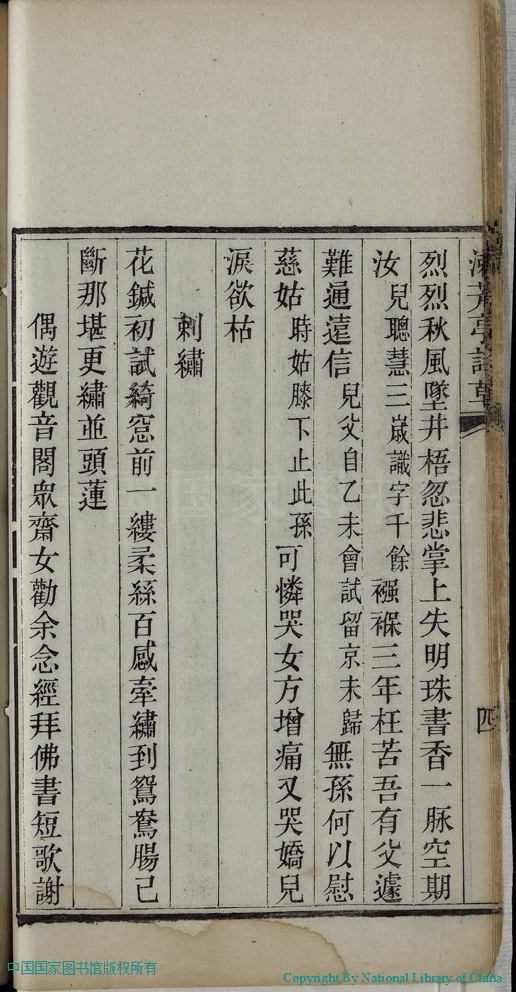 烈烈秋風墜井梧忽悲掌上失明珠書香一脉空期
汝兒聰慧三嵗識字千餘襁褓三年枉苦吾有父遽
難通遠信兒父自乙未會試留京未歸無孫何以慰
慈姑時姑膝下止此孫可憐哭女方增痛又哭嬌兒
淚欲枯
刺繡
花鍼初試綺窓前一縷柔絲百感牽繡到鴛鴦腸已
斷那堪更繡並頭蓮
偶遊觀音閣衆齋女勸余念經拜佛書短歌謝
四
中国国家图书馆版权所有
Copyright By National Library of China